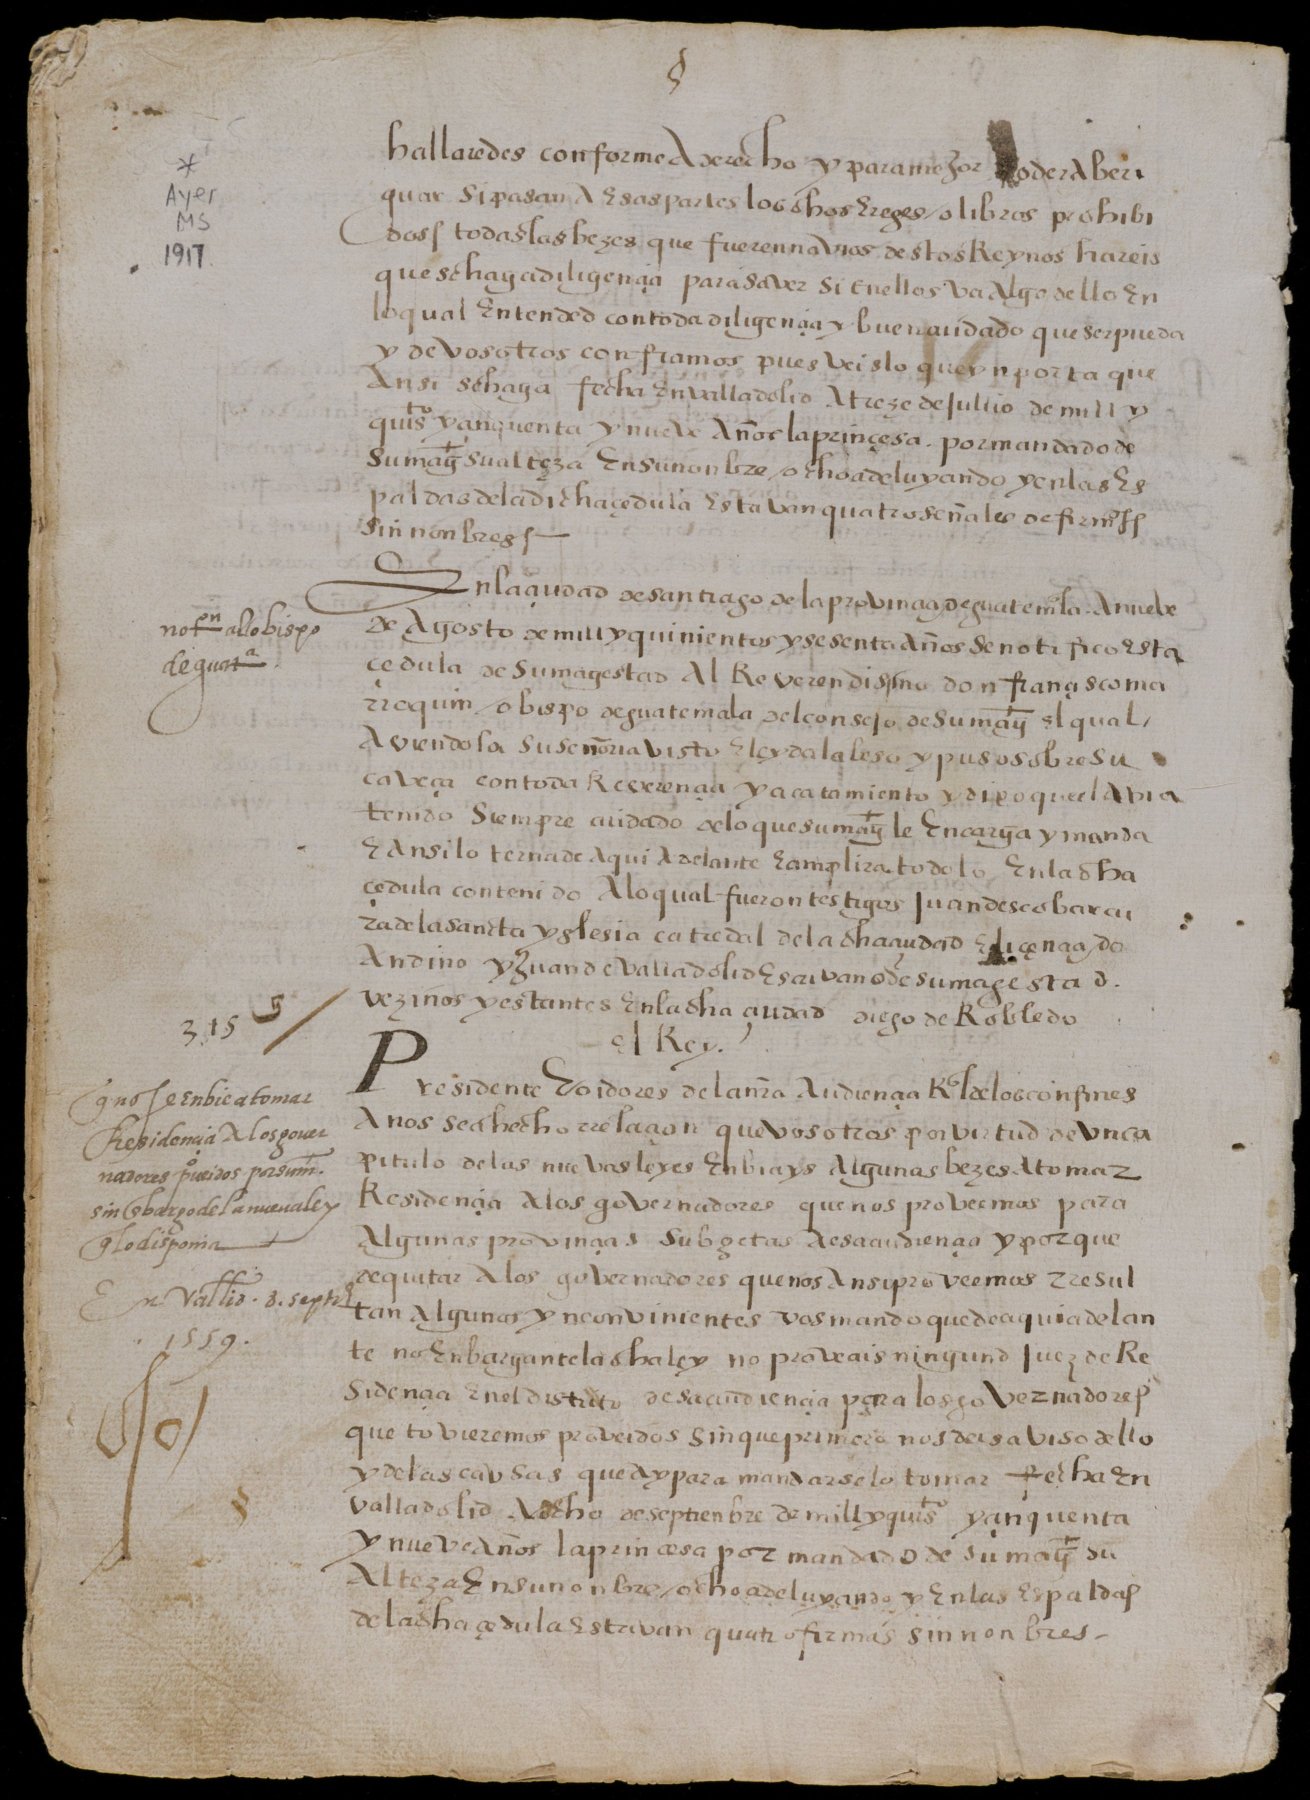 §
* Ayer
MS
1917.
hallaredes conforme A derecho y para mejor poder Aberi
guar si pasan A Esas partes los dhos Ereges / o libros prohibi
dos / todas las bezes que fueren navios destos Reynos hareis
que se haga diligençia para saver si En ellos va Algo dello En
lo qual Entended con toda diligençia y buen cuidado que ser pueda
y de vosotros confiamos pues veis lo que ynporta que
Ansi se haga fecha En valladolid A treze de Jullio de mill y
quis yçinquenta y nueve Años la prinçesa. por mandado de
Su magt Su alteza En su nonbre / ochoa de luyando y en las Es
paldas de la dicha çedula Estavan quatro señales de firmas
sin nonbres /
En la çiudad de santiago de la provinçia de guatemla. A nueve
de Agosto de mill y quinientos y sesenta Años se notifico Esta
çedula de Su magestad Al Reverendisimo don françisco ma
rroquin / obispo de guatemala del consejo de Su magt El qual /
Aviendola su señoria visto E leyda la beso y puso sobre su
caveça con toda Reverençia y acatamiento y dixo que el Avia
tenido Siempre cuidado de lo que su magt le Encarga y manda
E Ansi lo terna de Aqui Adelante E cumplira todo lo En la dha
çedula contenido A lo qual fueron testigos Juan descobar cu
ra de la sancta yglesia catredal de la dha çiudad E liçençiado
Andino y Juan de valladolid Escrivano de su magestad.
vezinos y estantes En la dha çiudad Diego de Robledo
noton al obispo
de guata
315 5
El Rey.
Presidente E oidores de la nra Audiençia Rl de los confines
A nos se a hecho rrelaçion que vosotros por virtud de vn ca
pitulo de las nuevas leyes Enbiays Algunas bezes A tomar
Residençia A los governadores que nos proveemos para
Algunas provinçias subgetas A esa audiençia y porque
de quitar A los governadores que nos Ansi proveemos rresul
tan Algunos ynconvinientes vos mando que de aqui adelan
te no Enbargante la dha ley no proveais ningund Juez de Re
sidençia En el distrito desa audiençia para los governadores
que tovieremos proveidos sin que primero nos deis aviso dello
y de las cavsas que Ay para mandarselo tomar fecha En
valladolid A ocho de septienbre de mill y quis yçinquenta
y nueve Años la prinçesa por mandado de su magt Su
Alteza En su nonbre / ochoa de luyando y En las Espaldas
de la dha çedula Estavan quatro firmas sin nonbres -
q no se enbie a tomar
Residençia A los gover
nadores pueidos por su mt.
sin Enbargo de la nueva ley
q lo disponia
En Vallid. 8. septre
1559.
§